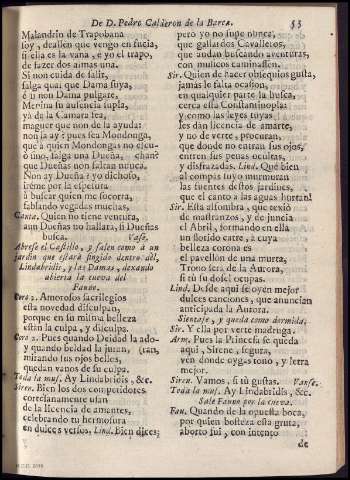 De D. Pedro Calderon de la Barca. 53
Malandrin de Trapobana
soy, deallen que vengo en fucia,
si ella es la vana, e yo el trapo,
de fazer dos almas una.
Si non cuida de salir,
salga quai que Dama suya,
è si non Dama pulgare,
Menina su ausencia supla,
yà de la Camara sea,
maguer que non de la ayuda:
non la ay? pues sea Mondonga,
que a quien Mondongas no escu-
ò uno, salga una Dueña; chan?
que Dueñas non faltan nunca.
Non ay Dueña? yo dichoso,
irème por la espesura
à buscar quien me socorra,
fablando vegadas muchas,
Canta. Quien no tiene ventura,
aun Dueñas no hallarà, si Dueñas
busca. Vase.
Abrese el Castillo, y salen como à un
jardin que estarà fingido dentro dèl,
Lindabridis, y las Damas, dexando
abierta la cueva del
Fauno.
Coro 1. Amorosos sacrilegios
esta novedad disculpen,
porque en su misma belleza
estàn la culpa, y disculpa.
Coro 2. Pues quando Deidad la ado-
y quando beldad la juran, (ran,
mirando sus ojos bellos,
quedan vanos de su culpa.
Toda la mus. Ay Lindabridis, &c.
Siren. Bien los dos competidores
cortesanamente usan
de la licencia de amantes,
celebrando tu hermosura
en dulces versos. Lind. Bien dizes;
pero yo no supe nunca,
que gallardos Cavalleros,
que andan buscando aventuras,
con musicos caminassen.
Sir. Quien de hacer obsequios gusta,
jamàs le falta ocasion,
en qualquier parte la busca,
cerca està Constantinopla:
y como las leyes tuyas
les dàn licencia de amarte,
y no de verte, procuran,
que donde no entran sus ojos,
entren sus penas ocultas,
y disfrazadas. Lind. Què bien
al compàs suyo murmuran
las fuentes destos jardines,
que el canto a las aguas hurtan!
Sir. Esta alfombra, que texiò
de mastranzos, y de juncia
el Abril, formando en ella
un florido catre, à cuya
belleza corona es
el pavellòn de una murta,
Trono serà de la Aurora,
si tù su dosel ocupas.
Lind. Desde aqui se oyen mejor
dulces canciones, que anuncian
anticipada la Aurora.
Sientase, y queda como dormida.
Sir. Y ella por verte madruga.
Arm. Pues la Princesa se queda
aqui, Sirene, segura,
ven donde oygas tono, y letra
mejor.
Siren. Vamos, si tù gustas. Vanse.
Toda la mus. Ay Lindabridis, &c.
Sale Fauno por la cueva.
Fau. Quando de la opuesta boca,
por quien bosteza esta gruta,
aborto fui, con intento
de